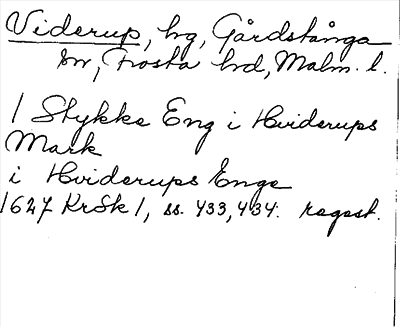 Viderup, hg, Gårdstånga
sn, Frosta hd, Malm. l.
1 Stykke Eng i Hviderups
Mark
i Hviderups Enge
1627 KrSk 1, ss. 433, 434. regest.